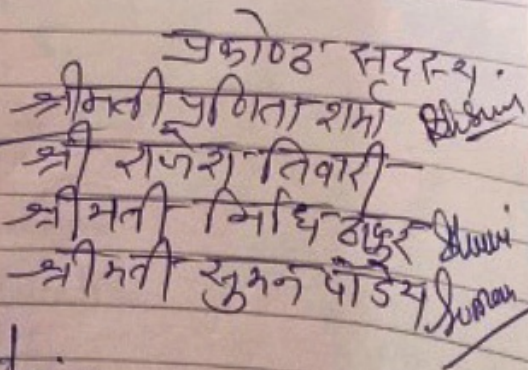 प्रकोष्ठ सदस्य.
श्रीमती प्रणिता शर्मा
श्री राजेश तिवारी
श्रीमती निधि ठाकुर
श्रीमती सुमन पांडेय Suman